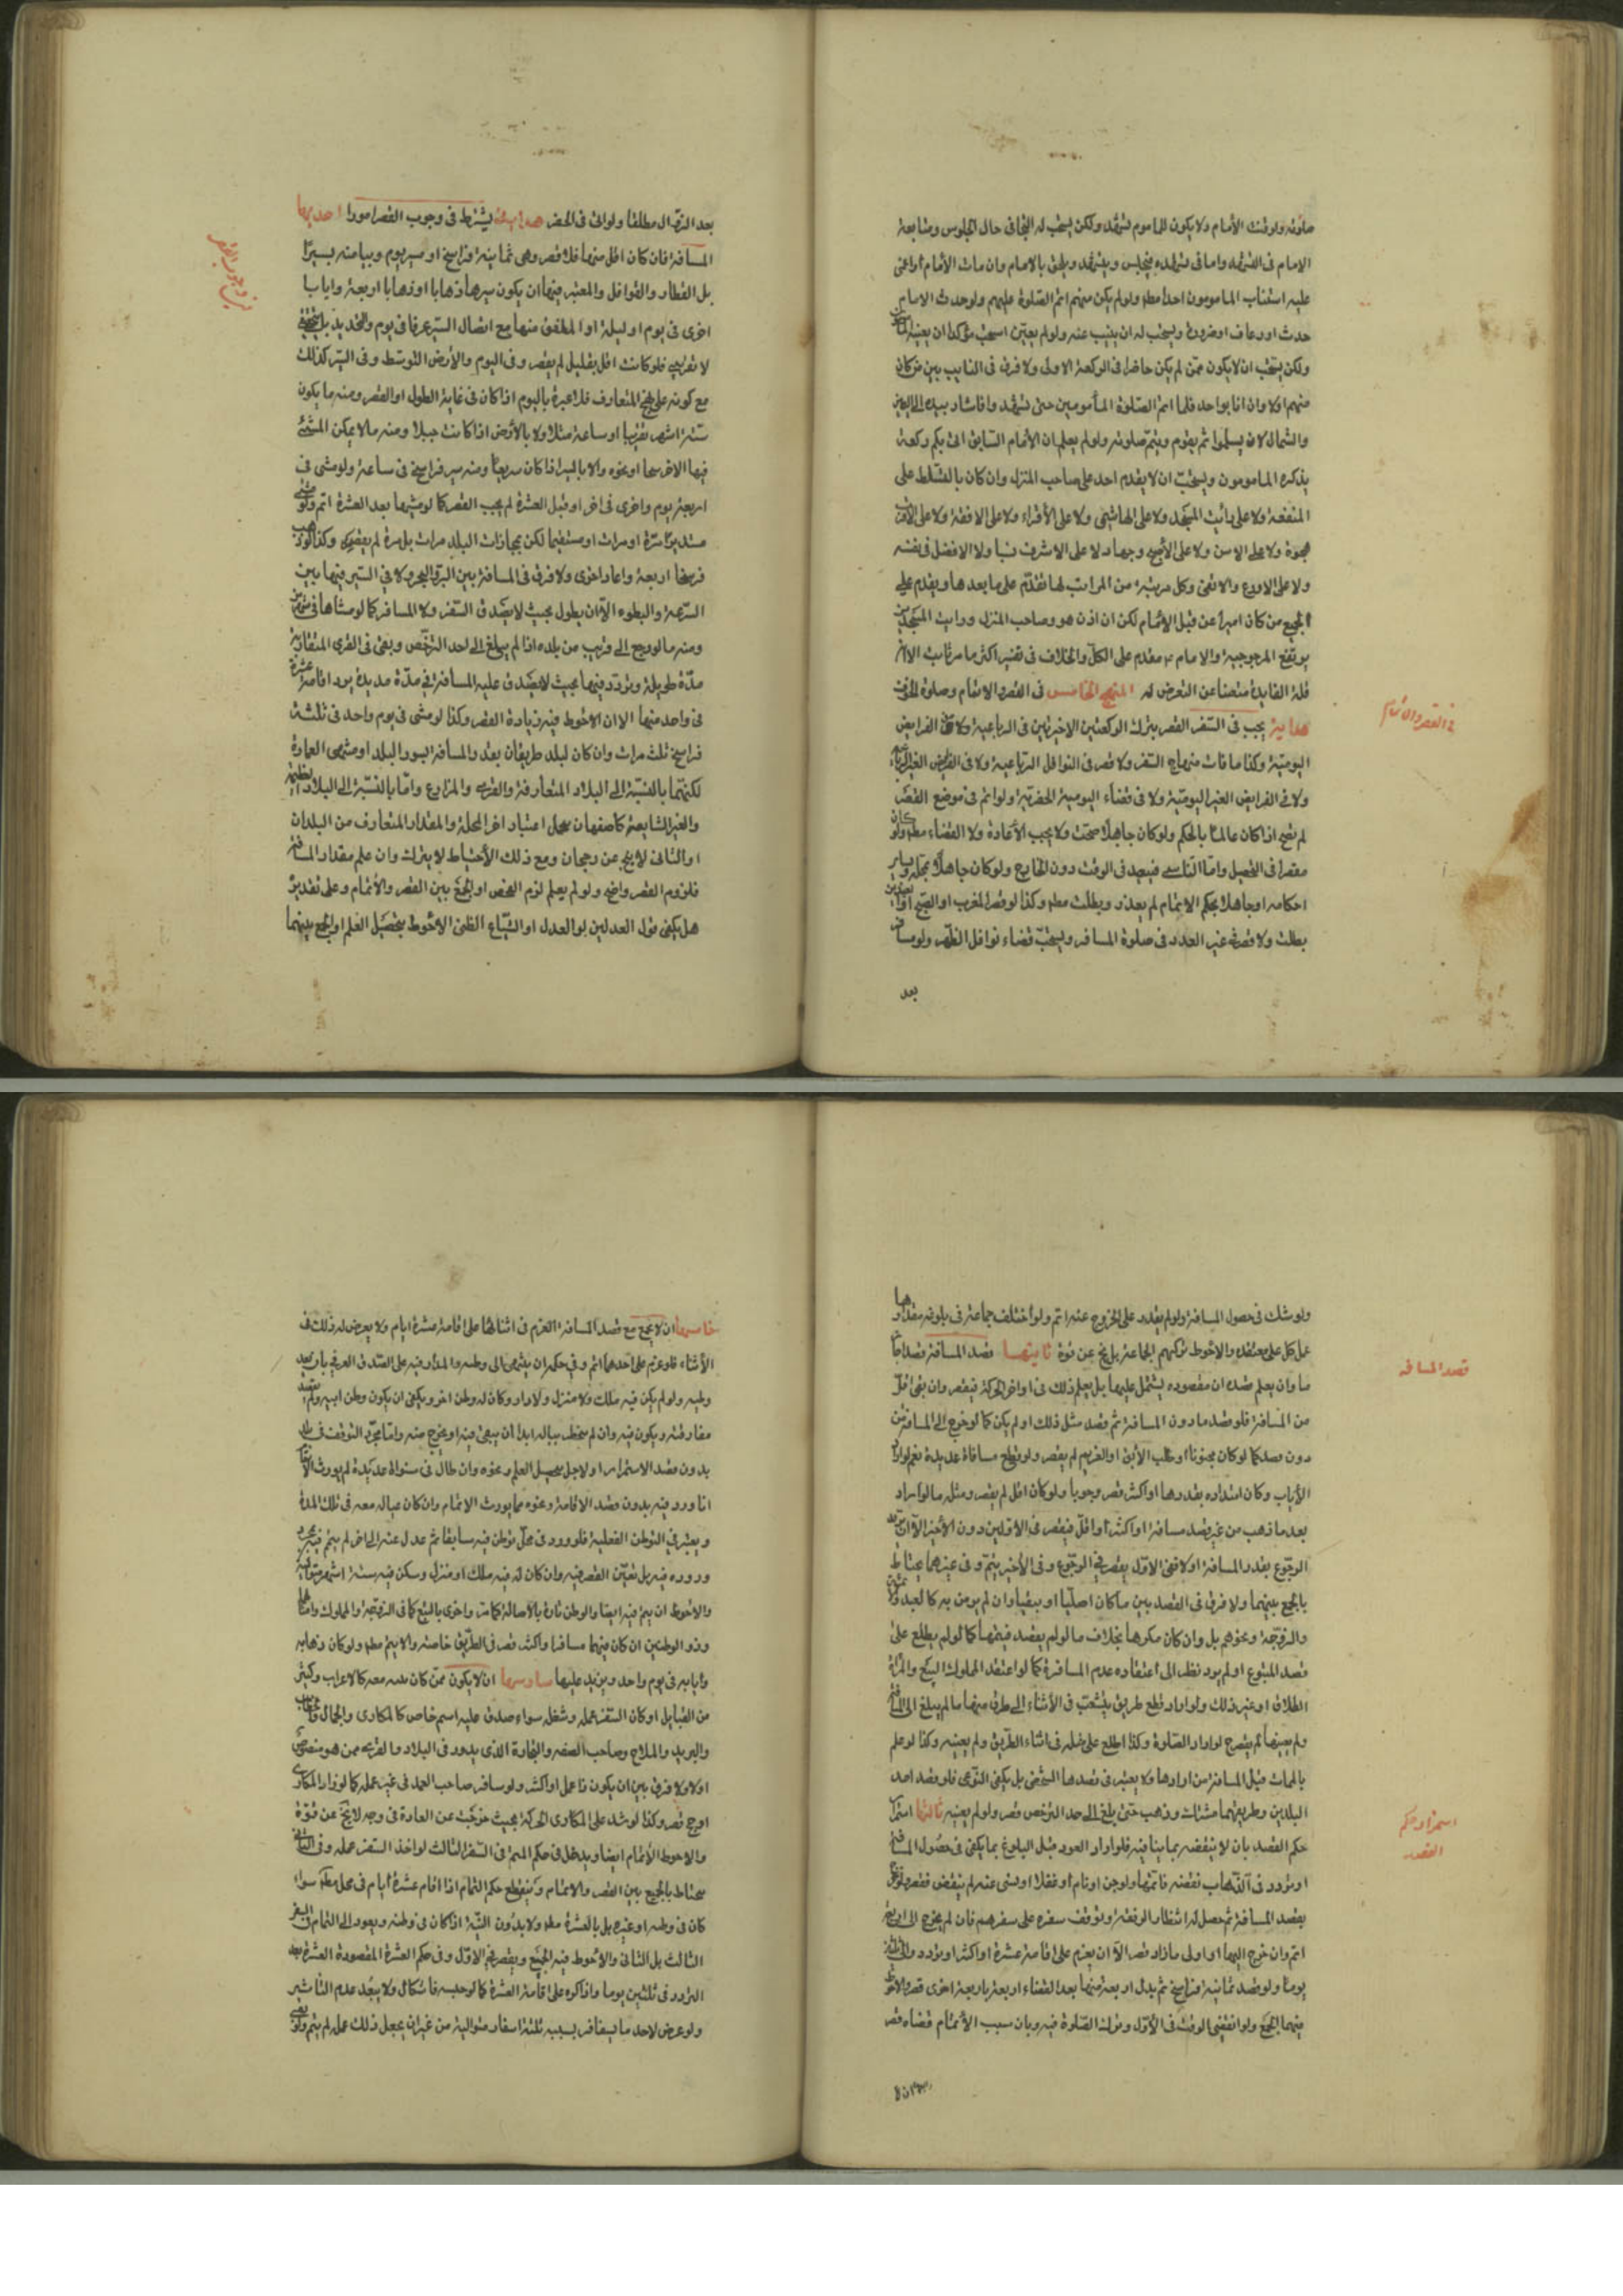 صلوته ولو قنت الأمام ولا يكون للماموم تشهد ولكن يستحب له التجافى حال الجلوس ومتابعة
الامام فى التشهد واما فى تشهده فيجلس ويتشهد ويلحق بالامام وان مات الأمام او اغمى
عليه استناب المامومون احدا مطلقا ولو لم يكن منهم اتم الصلوة عليهم ولو حدث الامام
حدث او رعاف او ضرورة يستحب له ان ينيب عنه ولو لم يعين استحب مؤكدا ان يعينه
ولكن يستحب ان لا يكون ممن لم يكن حاضرا فى الركعة الاولى ولا فرق فى النايب بين من كان
منهم اولا وان انابوا حد فلما اتم الصلوة المأمومين حتى تشهد واشار بيده الى اليمين
والشمال لان يسلموا ثم يقوم ويتم صلوته ولو لم يعلم ان الأمام السابق اتى بكم ركعة
يذكره المامومون ويستحب ان لا يقدم احد على صاحب المنزل وان كان بالتسلط على
المنفعة ولا على راتب المسجد ولا على الهاشمى ولا على الأقراء ولا على الافقه ولا على الأقدم
هجرة ولا على الاسن ولا على الأصبح وجها ولا على الاشرف نسبا ولا الافضل فى نفسه
ولا على الاورع والاتقى وكل مرتبة من المراتب لها تقدم على ما بعدها ويقدم على
الجميع من كان اميرا من قبل الأمام لكن ان اذن هو وصاحب المنزل وراتب المسجد
يرتفع المرجوحية والامام ع مقدم على الكل والخلاف فى تفسير اكثر ما مر غايت الامر
قلة الفايدة منعنا عن التعرض له المنهج الخامس فى القصر والاتمام وصلوة الخوف
هداية يجب فى السفر القصر بترك الركعتين الاخيرتين فى الرباعية ولا فى الفرايض
اليومية وكذا ما فات منها فى السفر ولا قصر فى النوافل الرباعية ولا فى الفرايض الغير الرباعية
ولا فى الفرايض الغير اليومية ولا فى قضاء اليومية الحضرية ولو اتم فى موضع القصر
لم يصح اذا كان عالما بالحكم ولو كان جاهلا صحت ولا يجب الأعادة ولا القضاء مطلقا ولو كان
مقصرا فى التحصيل واما الناسى فيعيد فى الوقت دون الخارج ولو كان جاهلا
احكامه او جاهلا بحكم الاتمام لم يعذر وبطلت مطلقا وكذا لو قصر المغرب او الصبح
بطلت ولا قصر فى غير العدد فى صلوة المسافر ويستحب قضاء نوافل الظهر ولو سافر
بعد
فى القصر والاتمام
بعد الزوال مطلقا ولو اتى فى الحضر هداية يشترط فى وجوب القصر امور احديها
المسافة فان كان اقل منها فلا قصر وهى ثمانية فراسخ او مسير يوم وبياضه بسير
بل القطار والقوافل والمعتبر فيها ان يكون سيرها ذهابا او ذهابا اربعة وايابا
اخرى فى يوم او ليلة او الملفق منها مع اتصال السير عرفا فى يوم والتحديد تحقيقى
لا تقريبى فلو كانت اقل بقليل لم يقصر وفى اليوم والأرض التوسط وفى السير كذلك
مع كونه على نهج المتعارف فلا عبرة باليوم اذا كان فى غاية الطول او القصر ومنه ما يكون
ستة اشهر تقريبا او ساعة مثلا ولا بالأرض اذا كانت جبلا ومنه ما لا يمكن المشى
فيها الا فرسخا او نحوه ولا بالسير اذا كان سريعا ومنه سير فراسخ فى ساعة ولو مشى فى
اربعة يوم واخرى فى اخر او قبل العشرة لم يجب القصر كما لو مشيها بعد العشرة اتم ولو مشى
مستديرا مرة او مرات او مستقيما لكن بمجازات البلد مرات بل مرة لم يقصر وكذا لو
فرسخا اربعة واعاد اخرى ولا فرق فى المسافة بين البر والبحر ولا فى السير فيها بين
السرعة والبطوء الا ان يطول بحيث لا يصدق السفر ولا المسافر كما لو مشاها فى
ومنه ما لو رجع الى قريب من بلده اذا لم يبلغ الى احد الترخص وبقى فى القرى المتقاربة
مدة طويلة وتردد فيها بحيث لا يصدق عليه المسافر فى مدة مديدة يود اقامة عشرة
فى واحد منها الا ان الاحوط فيه زيادة القصر وكذا لو مشى فى يوم واحد فى ثلثة
فراسخ ثلث مرات وان كان لبلد طريقان بقدر المسافة بسور البلد او منتهى العمارة
لكنهما بالنسبة الى البلاد المتعارفة والقرى والمزارع واما بالنسبة الى البلاد العظيمة
والغير الشايعة كاصفهان محل اعتبار اخر المحلة والمقدار المتعارف من البلدان
والثانى لا يخ عن رجحان ومع ذلك الأحتياط لا يترك وان علم مقدار المسافة
فلزوم القصر واضح ولو لم يعلم لزم الفحص او الجمع بين القصر والأتمام وعلى تقدير
هل يكفى قول العدلين او العدل او الشياع الظنى الأحوط تحصيل العلم او الجمع بينهما
ولو شك فى حصول المسافة ولو لم يقدر على الخروج عنه اتم ولو اختلف جماعة فى بلوغه مقدارها
عمل كل على معتقده والاحوط تركهم الجماعة بل لا يخ عن قوة ثانيتها قصد المسافة قصدا
ما وان يعلم ضده ان مقصوده يشتمل عليها بل يعلم ذلك فى اواخر الحركة فيقصر وان بقى اقل
من المسافة فلو قصد ما دون المسافة ثم قصد مثل ذلك او لم يكن كما لو خرج الى المسافة من
دون قصد كما لو كان مجنونا او طلب الأبق او الغريم لم يقصر ولو قطع مسافة عديدة نعم لو اراد
الأياب وكان امتداده بقدرها او اكثر قصر وجوبا ولو كان اقل لم يقصر ومثله ما لو اراد
بعد ما ذهب من غير قصد مسافة او اكثر او اقل فيقصر فى الاولين دون الأخير الا ان
الرجوع بقدر المسافة او لا ففى الاول يقصر فى الرجوع وفى الأخير يتم وفى غيرهما يحتاط
بالجمع بينهما ولا فرق فى القصد بين ما كان اصليا او تبعيا وان لم يؤمن به كالعبد
والزوجة ونحوهم بل وان كان مكرها بخلاف ما لو لم يقصد فيتمها كما لو لم يطلع على
قصد المتبوع او لم يود نظر الى اعتقاده عدم المسافرة كما لو اعتقد المملوك البيع والمرأة
الطلاق او غير ذلك ولو اراد قطع طريق يتشعب فى الأثناء الى طرق منها ما لم يبلغ الى المسافة
ولم يعينها لم يقصر لو اراد الصلوة وكذا اطلع على خلله فى اثناء الطريق ولم يعينه وكذا لو علم
بالممات قبل المسافة من ارادها ولا يعتبر فى قصدها الشخصى بل يكفى النوعى فلو قصد احد
البلدين وطريقهما مشترك وذهب حتى بلغ الى حد الترخص قصر ولو لم يعينه ثالثها استمرار
حكم القصد بان لا ينقضه بما ينافيه فلو اراد العود قبل البلوغ بما يكفى فى حصول المسافة
او تردد فى الذهاب نقضه فاتمها ولو جن او نام او غفلا او نسى عنه لم ينقض فقصر
بقصد المسافة ثم حصل له انتظار الرفقة وتوقف سفره على سفرهم فان لم يخرج الى اربعة
اتم وان خرج اليها او اولى ما زاد قصر الا ان يعزم على اقامة عشرة او اكثر او تردد والى ثلثين
يوما ولو قصد ثمانية فراسخ ثم بدل اربعة منها بعد القضاء اربعة باربعة اخرى قصر والاحوط
فيهما الجمع ولو انقضى الوقت فى الأول وترك الصلوة فيه وبان سبب الأتمام قضاه قصر
قصد المسافة
استمرار حكم
القصد
خامسها ان لا يجمع مع قصد المسافة العزم فى اثنائها على اقامة عشرة ايام ولا يعرض له ذلك فى
الأثناء فلو عزم على احدهما اتم وفى حكمه ان ينتهى الى وطنه والمدار فيه على الصدق العرفى بان يعد
وطنه ولو لم يكن فيه ملك ولا منزل ولا دار وكان له وطن اخر ويكفى ان يكون وطن ابيه ولم يقصد
مفارقته ويكون فيه وان لم يخطر بباله ابدا أن يبقى فيه او يخرج منه واما مجرد التوقف فى بلد
بدون قصد الاستمرار او لاجل تحصيل العلم ونحوه وان طال فى سنوات عديدة لم يورث الأتمام
اذا ورد فيه بدون قصد الاقامة ونحوه مما يورث الاتمام وان كان عياله معه فى تلك المدة
ويعتبر فى التوطن الفعلية فلو ورد فى محل توطن فيه سابقا ثم عدل عنه الى اخر لم يتم فيه
وروده فيه بل تعين القصر فيه وان كان له فيه ملك او منزل وسكن فيه ستة اشهر متوالية
والاحوط ان يتم فيه ايضا والوطن تارة بالأصالة كما مر واخرى بالتبع كما فى الزوجة والمملوك
وذو الوطنين ان كان بينهما مسافة او اكثر قصر فى الطريق خاصة والا يتم مطلقا ولو كان ذهابه
وايابه فى يوم واحد ويزيد عليها سادسها ان لا يكون ممن كان بيته معه كالاعراب وكثير
من القبايل او كان السفر عمله وشغله سواء صدق عليه اسم خاص كالمكارى والجمال
والبريد والملاح وصاحب السفينة والتجارة الذى يدور فى البلاد والقرى ممن هو منصوص
اولا ولا فرق بين ان يكون ذا عمل او اكثر ولو سافر صاحب العمل فى غير عمله كما لو زار المكارى
او حج قصر وكذا لو شد على المكارى الحركة بحيث خرجت عن العادة فى وجه لا يخ عن قوة
والاحوط الأتمام ايضا ويدخل فى حكم المتم فى السفر الثالث لو اخذ السفر عمله وفى الثانى
يحتاط بالجمع بين القصر والاتمام وينقطع حكم التمام اذا اقام عشرة أيام فى محل مطلقا سواء
كان فى وطنه او غيره بل بالعشرة مطلقا ولا بدون النية اذا كان فى وطنه ويعود الى التمام فى السفر
الثالث بل الثانى والأحوط فيه الجمع ويقصر فى الاول وفى حكم العشرة المقصودة العشرة بعد
التردد فى ثلثين يوما واذا كره على اقامة العشرة كما لو حبسه فاشكال ولا يبعد عدم التأثير
ولو عرض لاحد ما يسافر بسببه ثلثة اسفار متوالية من غير ان يجعل ذلك عمله لم يتم ولو